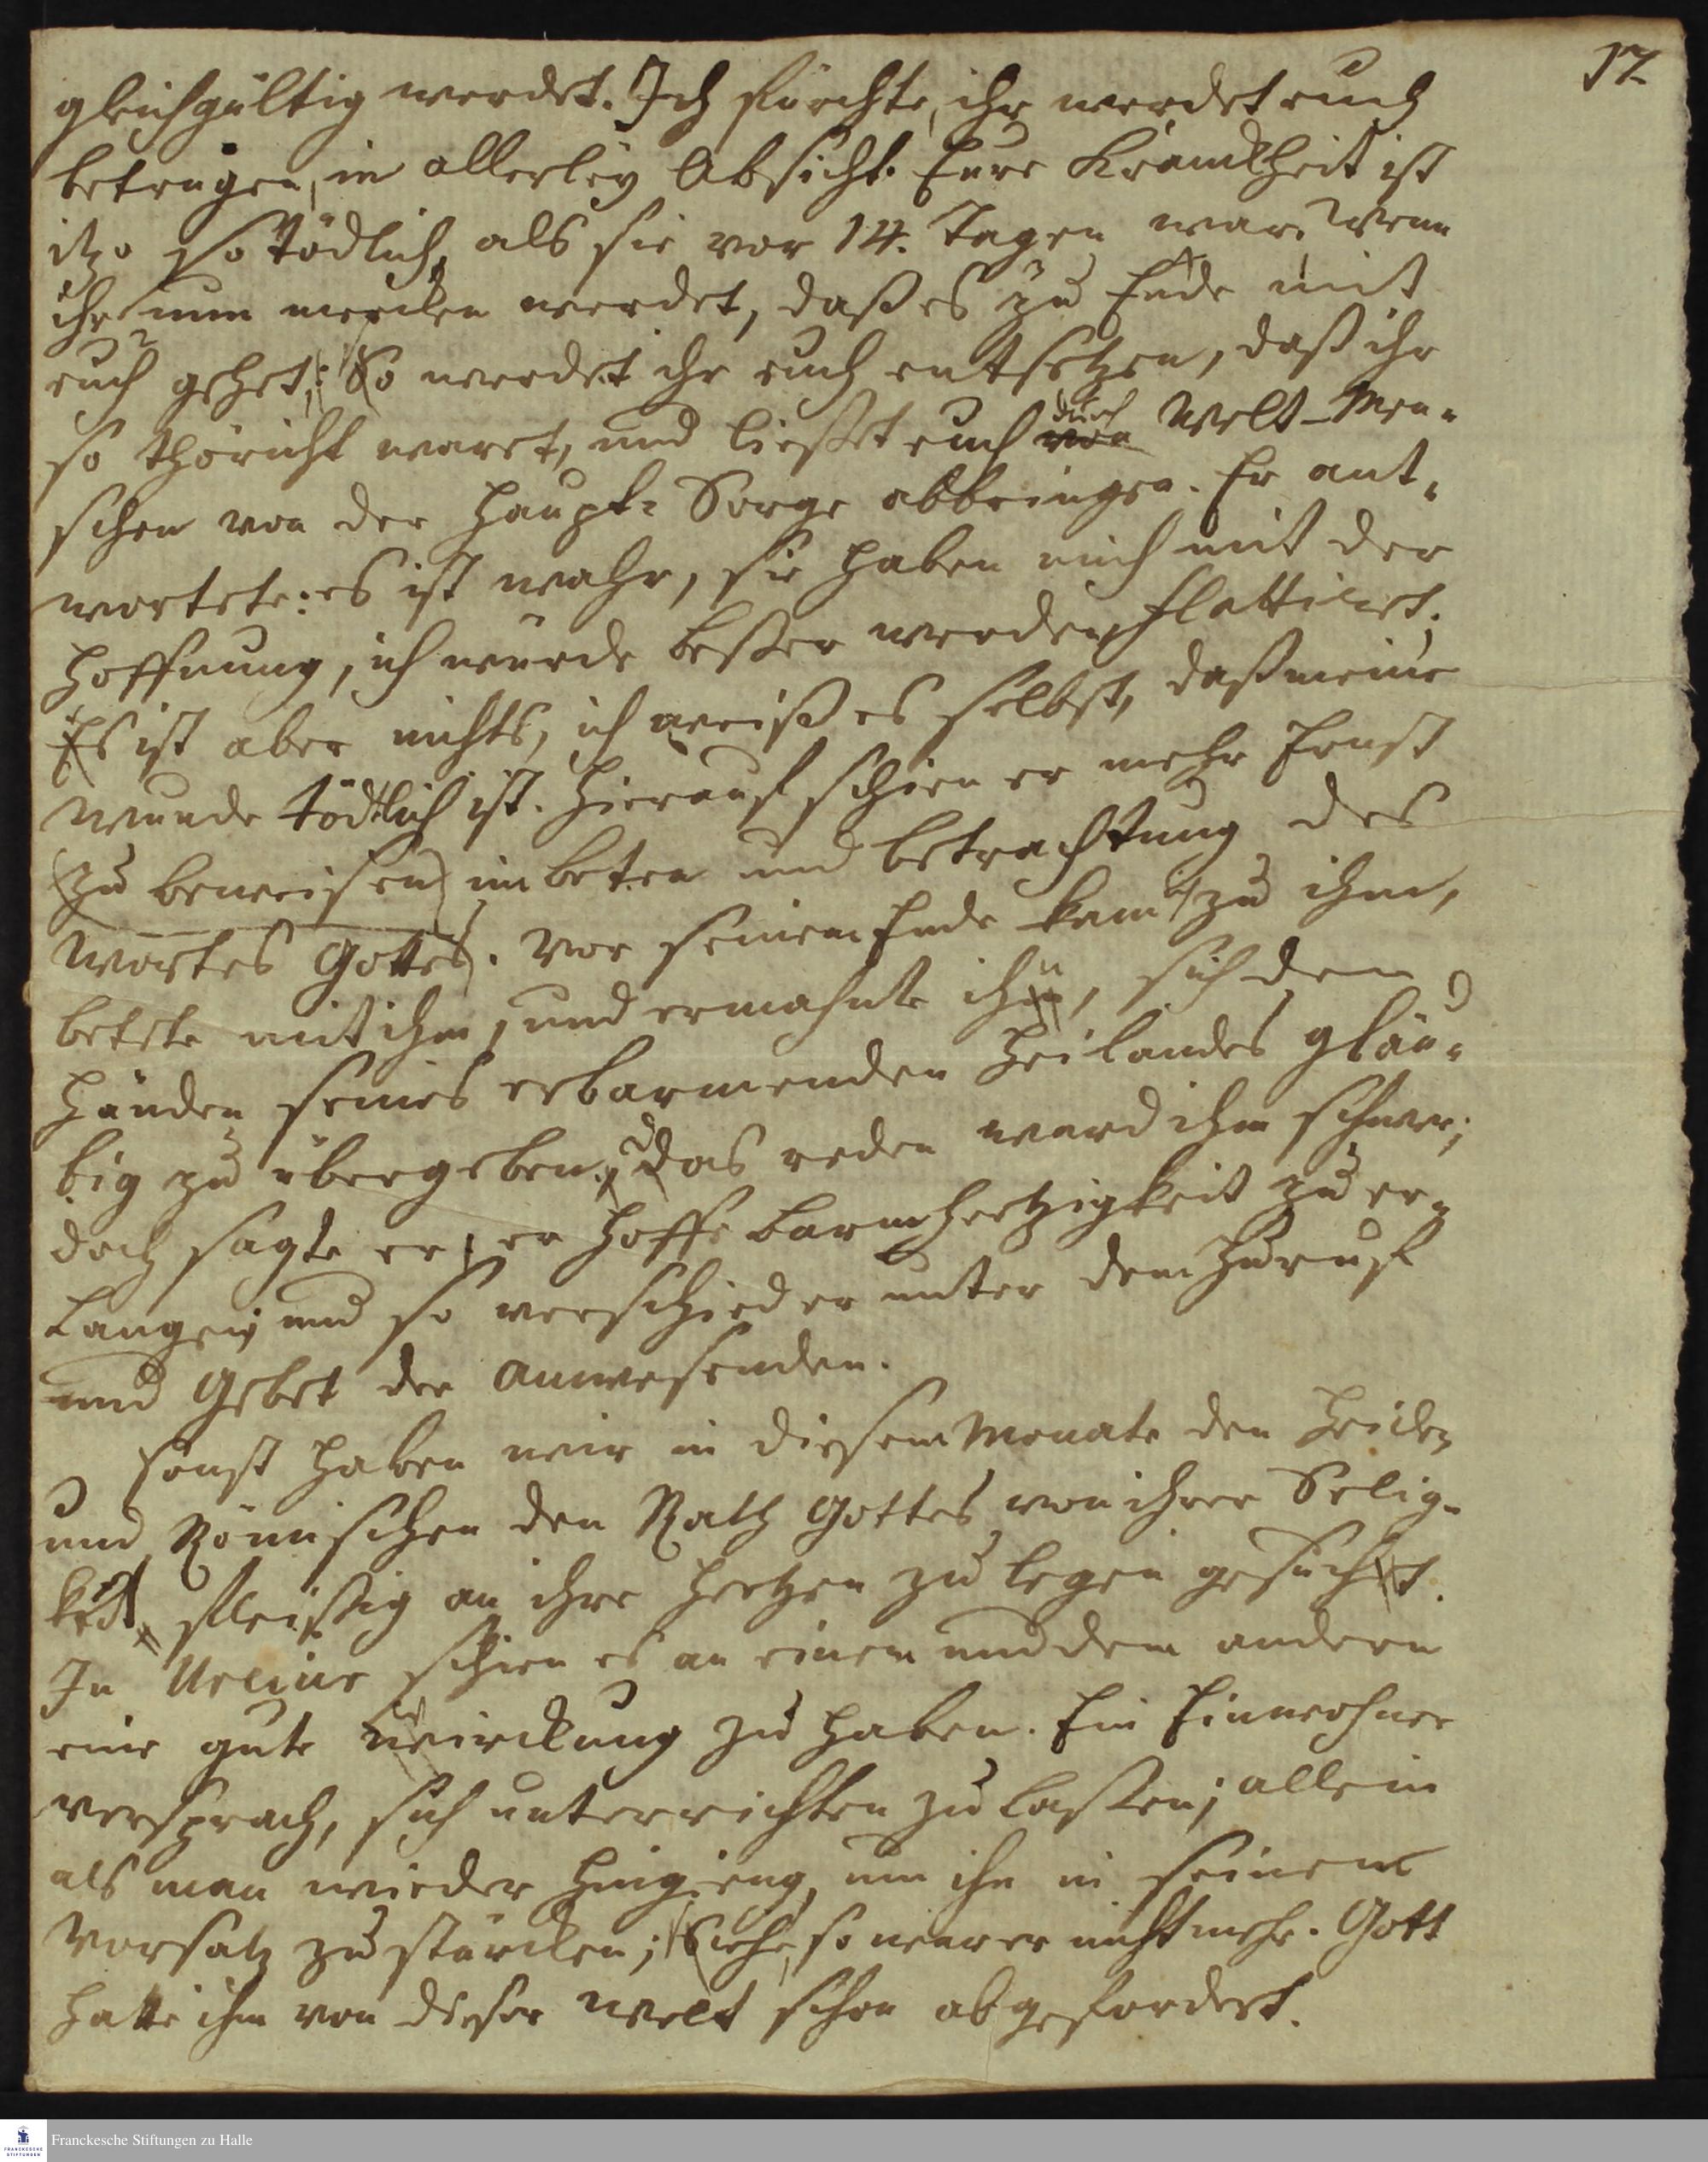 17.
gleichgültig werdet. Ich fürchte, ihr werdet euch
betrügen, in allerley Absicht. Eure Kranckheit ist
itzo so tödlich, als sie vor 14. Tagen war. Wenn
ihr nun mercken werdet, daß es zu Ende mit
euch gehet: So werdet ihr euch entsetzen, daß ihr
so thöricht waret, und ließet euch von durch Welt-Men-
schen von der Haupt-Sorge abbringen. Er ant-
wortete: es ist wahr, sie haben mich mit der
Hoffnung, ich würde beßer werden, flattiret.
Es ist aber nichts, ich weiß es selbst, daß meine
Wunde tödtlich ist. Hierauf schien er mehr Ernst
(zu beweisen) im beten und betrachtung des
Wortes Gottes. Vor seinem Ende kam ich zu ihm,
betete mit ihm, und ermahnte ihn, sich den
Händen seines erbarmenden Heilandes gläu-
big zu übergeben; das reden ward ihm schwer;
doch sagte er, er hoffe Barmhertzigkeit zu er-
langen; und so verschied er unter dem Zuruf
und Gebet der Anwesenden.
Sonst haben wir in diesem Monate den Heiden
und Römischen den Rath Gottes von ihrer Selig-
keit fleißig an ihre Hertzen zu legen gesucht.
In Ureiur schien es an einem und dem andern
eine gute Wirckung zu haben. Ein Einwohner
versprach, sich unterrichten zu laßen; allein
als man wieder hingieng, um ihn in seinem
Vorsatz zu stärcken; Siehe, so war er nicht mehr. Gott
hatte ihn von dieser Welt schon abgefordert.
Franckesche Stiftungen zu Halle